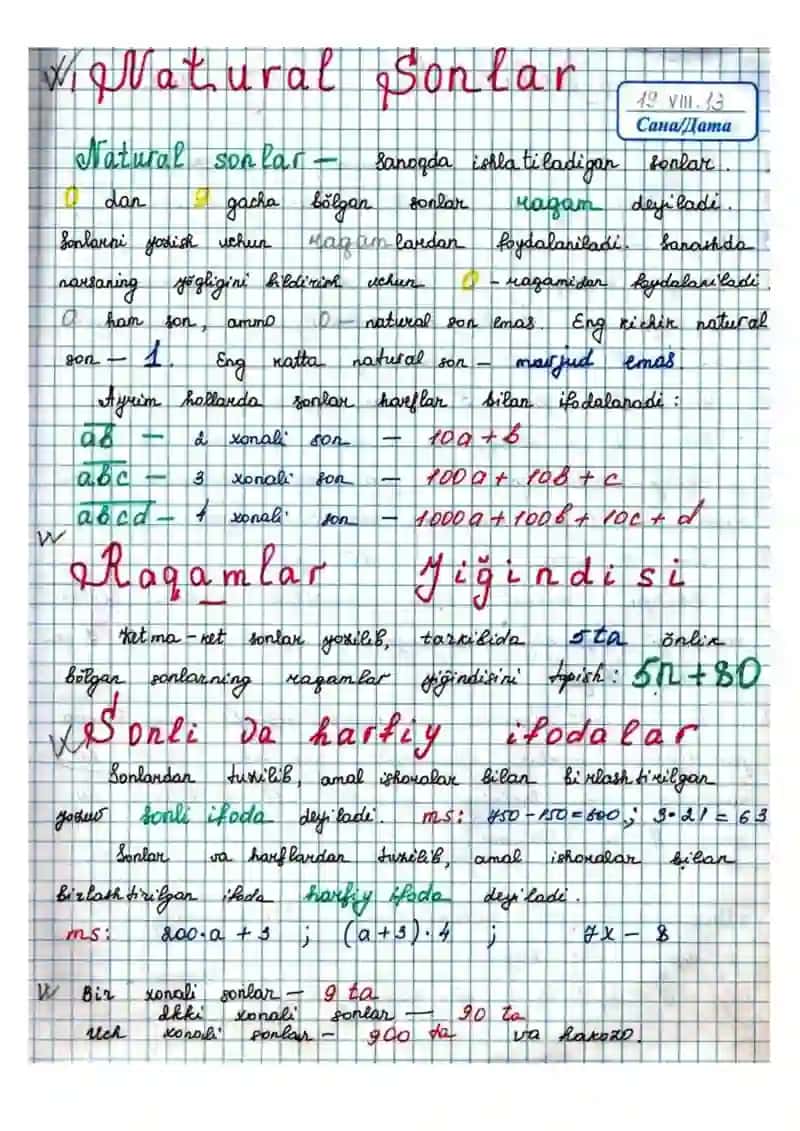 Natural Sonlar
19 VIII.13
Сана/Дата
Natural sonlar — sanoqda ishlatiladigan sonlar.
0 dan 9 gacha bŏlgan sonlar raqam deyiladi.
Sonlarni yozish uchun raqamlardan foydalaniladi. Sanashda
narsaning yŏqligini bildirish uchun 0 - raqamidan foydalaniladi.
0 ham son, ammo 0 - natural son emas. Eng kichik natural
son — 1. Eng katta natural son — mavjud emas.
Ayrim hollarda sonlar harflar bilan ifodalanadi :
ab — 2 xonali son — 10a + b
abc — 3 xonali son — 100a + 10b + c
abcd — 4 xonali son — 1000a + 100b + 10c + d
Raqamlar Yiğindisi
Ketma-ket sonlar yozilib, tarkibida 5 ta ŏnlik
bŏlgan sonlarning raqamlar yiğindisini topish : 5n + 80
Sonli va harfiy ifodalar
Sonlardan tuzilib, amal ishoralar bilan birlashtirilgan
yozuv sonli ifoda deyiladi. ms: 750 - 150 = 600 ; 3 · 21 = 63
Sonlar va harflardan tuzilib, amal ishoralar bilan
birlashtirilgan ifoda harfiy ifoda deyiladi.
ms: 200·a + 3 ; (a + 3) · 4 ; 7x - 8
Bir xonali sonlar — 9 ta
Ikki xonali sonlar — 90 ta
Uch xonali sonlar — 900 ta va hakozo.